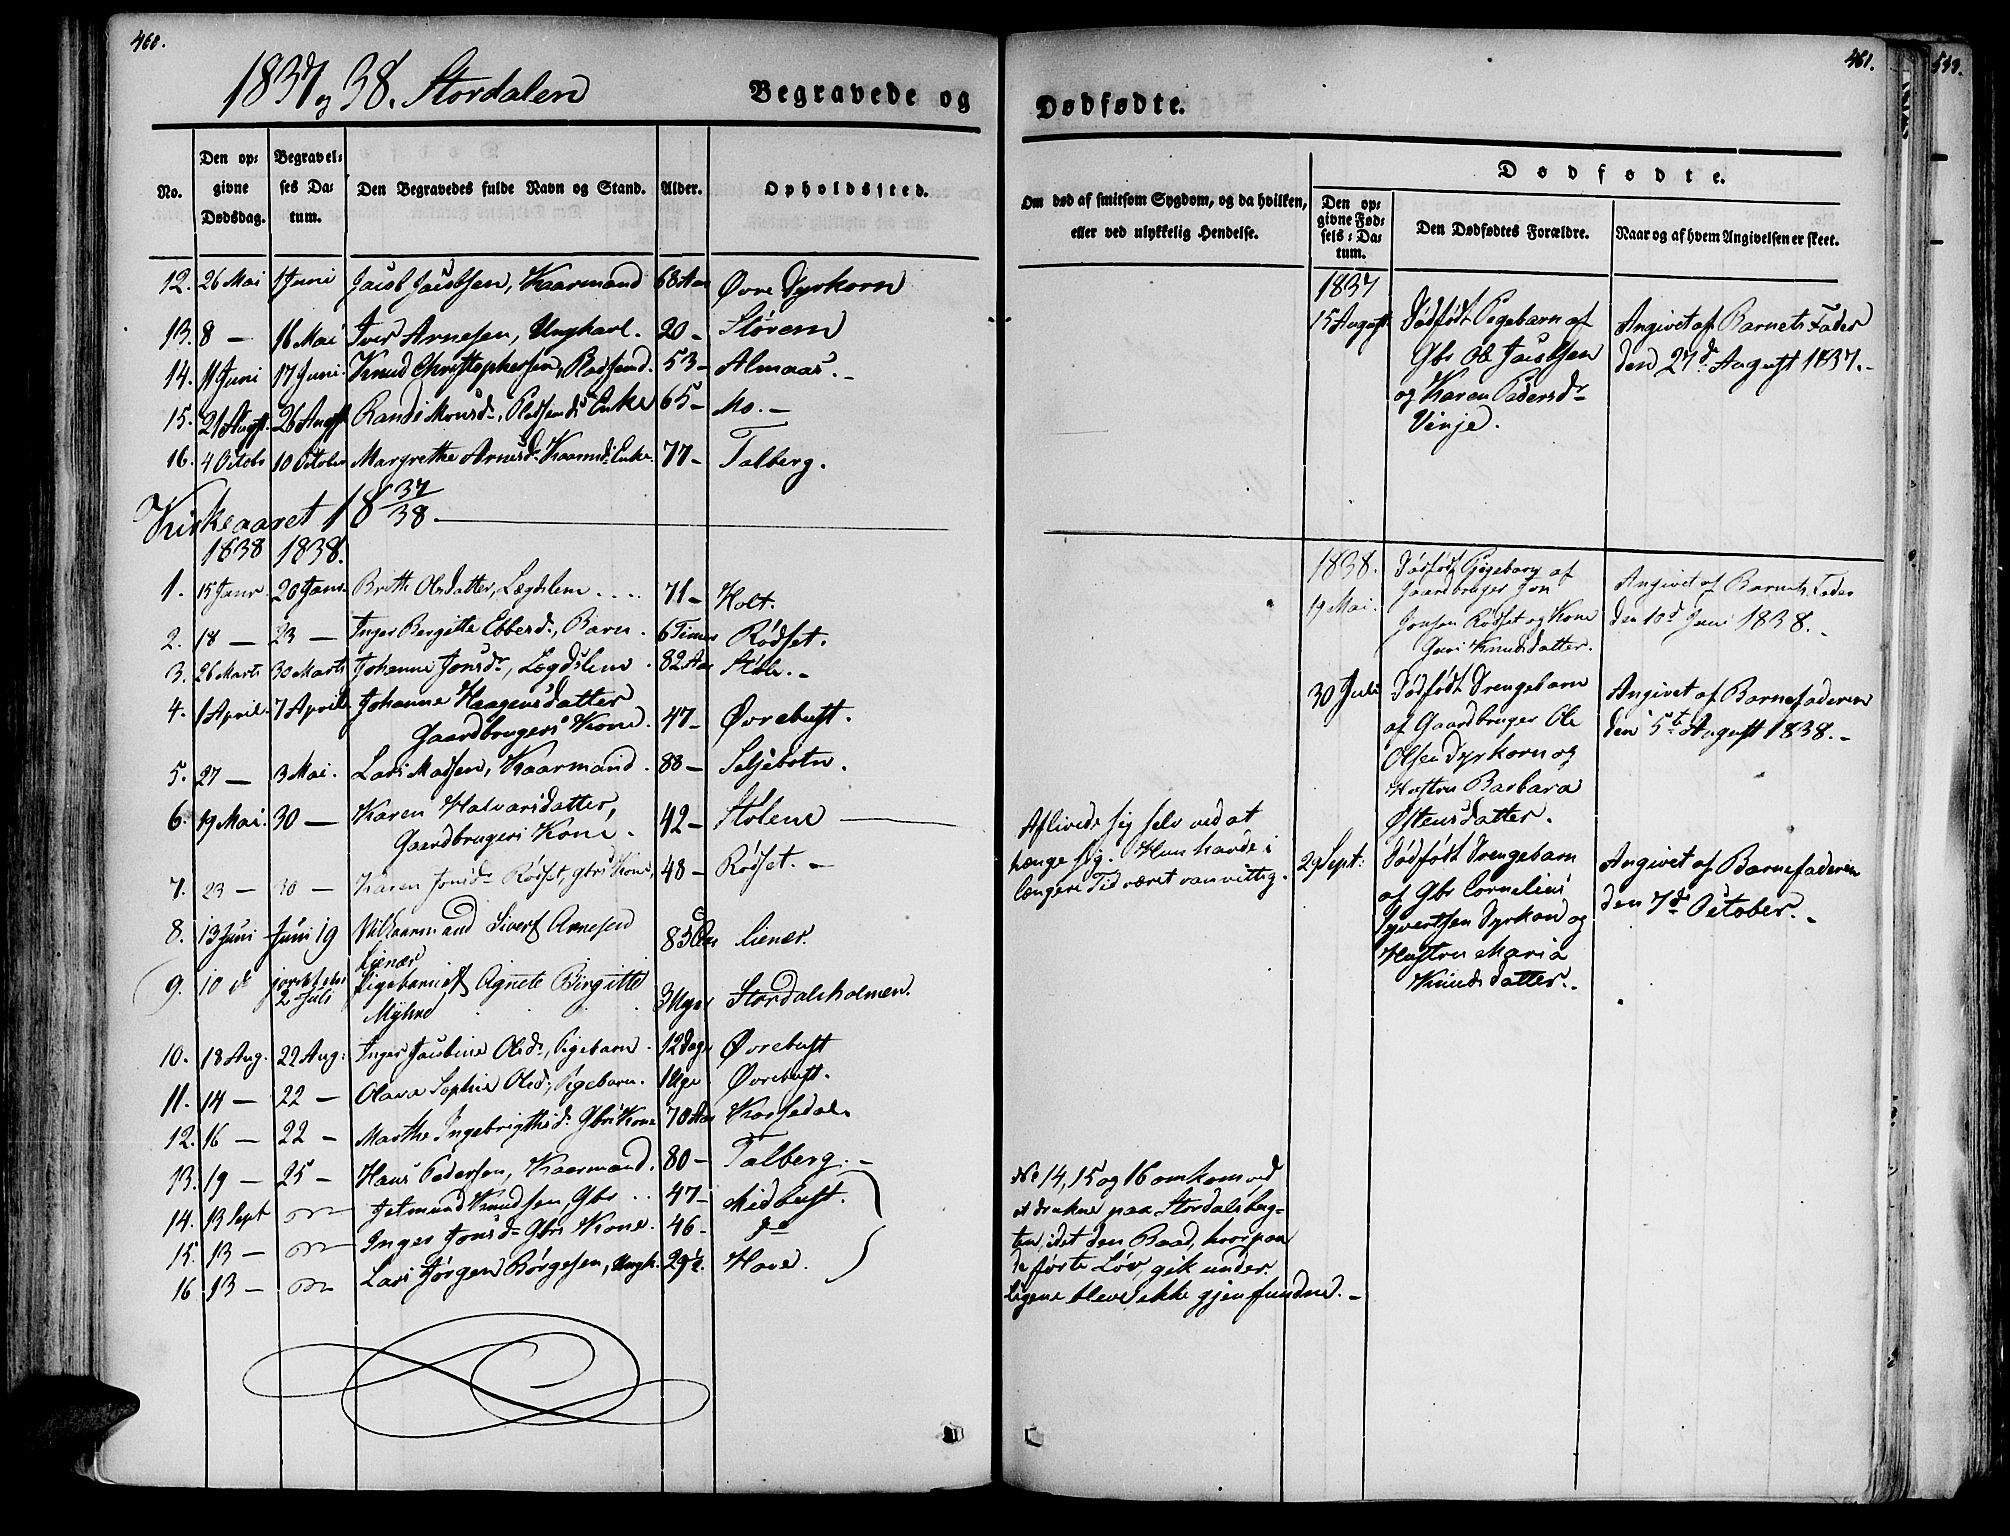 460.
1837 og 38. Stordalen
Begravede og
No.
Den op=
givne
Dødsdag.
Begravel=
ses Da=
tum.
Den Begravedes fulde Navn og Stand.
Alder.
Opholdssted.
12. 26 Mai 1 Juni Jacob Jacobsen, Kaarmand 68 Aar Øvre Dyrkorn
13. 8 — 16 Mai Iver Arnesen, Ungkarl. 20 — Støvem
14. 11 Juni 17 Juni Knud Christophersen, Pladsmd. 53 — Almaas. —
15. 21 Augst. 26 Augst Randi Monsdr., Pladsmds Enke 65 — Mo. —
16. 4 Octobr 10 October Margrethe Arnesdr. Kaarmds Enke. 77 — Talberg.
Kirkeaaret 18 37/38. —
1838 1838.
1. 15 Janr 20 Janr. Brithe Olsdatter, Lægdslem .... 71 — Holt.
2. 18 — 23 — Inger Bergitte Ebbesdr., Barn. 6 Timer Rødset.
3. 26 Marts 30 Marts Johanne Jonsdr., Lægdslem. 82 Aar
4. 1 April. 7 April Johanne Haagensdatter
Gaardbrugers Kone. 47 — Øvrebust.
5. 27 — 3 Mai. Lars Madsen, Kaarmand. 88 — Seljebotn.
6. 19 Mai. 30 — Karen Halvorsdatter,
Gaardbrugers Kone. 42 — Stølene —
7. 23 — 30 — Karen Jonsdr. Rødset, gbrs Kone, 48 — Rødset. —
8. 13 Juni Juni 19 Kaarmand Sivert Arnesen
Lienær 83 Aar Lienær.
9. 10 d
2 Juli Pigebarnet Agnete Birgitte
Myhre 3 Uger Stordalsholmen.
10. 18 Aug. 22 Aug: Inger Jacobine Olsdr., Pigebarn. 12 Dage Øvrebust
11. 14 — 22 — Olava Sophie Olsdr., Pigebarn. 1 Uge. Øvrebust.
12. 16 — 22 — Marthe Ingebrigthsdr. Gbrs Kone 70 Aar
13. 19 — 25 — Hans Pedersen, Kaarmand. 80 — Talberg. —
14. 13 Sept Jetmund Knudsen, Gbr .. 47 — Midbust.
15. 13 — Inger Jonsdr. Gbrs Kone. 46 — do
16 13 — Lars Jørgen Børgesen, Ungk. 29½. Hove.
461.
Dødfødte.
Om død af smitsom Sygdom, og da hvilken,
eller ved ulykkelig Hendelse.
Dødfødte.
Den op=
givne Fød=
sels=Da=
tum.
Den Dødfødtes Forældre.
Naar og af hvem Angivelsen er skeet.
1837
15 August Dødfødt Pigebarn af
Gbr Ole Jacobsen
og Karen Pedersdr.
Vinje.
Angivet af Barnets Fader
den 27d. August 1837. —
1838.
19 Mai. Dødfødt Pigebarn af
Gaardbruger Jon
Jonsen Rødset og Kone
Guri Knudsdatter.
Angivet af Barnets Fader
den 10d Juni 1838. —
30 Juli Dødfødt Drengebarn
af Gaardbruger Ole
Olsen Dyrkorn og
Hustru Barbara
Østensdatter.
Angivet af Barnefaderen
den 5te August 1838. —
Aflivede sig selv ved at
hænge sig. Hun havde i
længere Tid været vanvittig.
29 Sept: Dødfødt Drengebarn
af Gbr Cornelius
Syvertsen Dyrkorn og
Hustru Maria
Knudsdatter. —
Angivet af Barnefaderen
den 7d October. —
No 14, 15 og 16 omkom ved
at drukne paa Stordalsberg=
ten, idet den Baad, hvorpaa
de førte Løv, gik under.
Ligene bleve ikke gjenfundne. —
549.